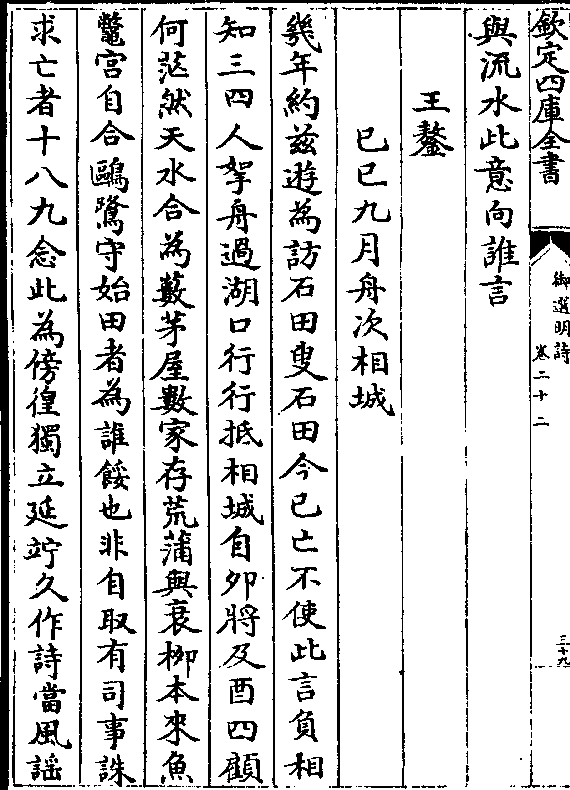 欽定四庫全書
御選明詩
卷二十二
三十九
與流水此意向誰言
王鏊
己巳九月舟次相城
幾年約兹遊為訪石田叟石田今已亡不使此言負相
知三四人拏舟過湖口行行抵相城自夘將及酉四顧
何茫然天水合為藪茅屋數家存荒蒲與衰栁本來魚
鼈宫自合鷗鷺守始田者為誰餒也非自取有司事誅
求亡者十八九念此為傍徨獨立延竚久作詩當風謡